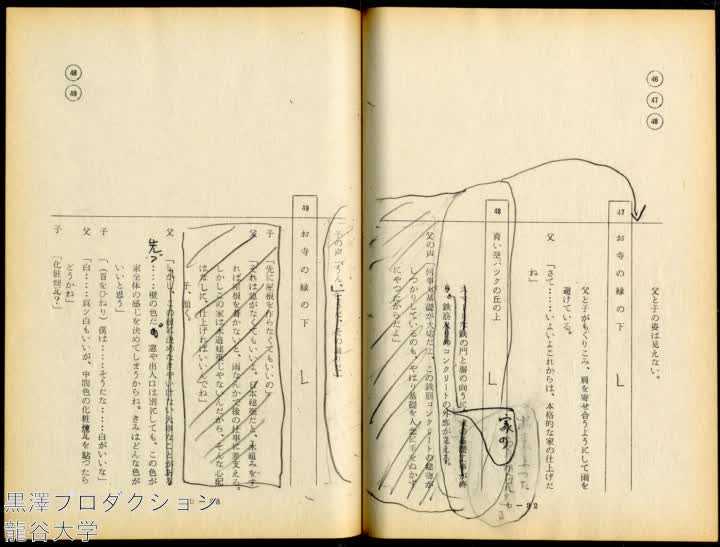 46
47
48
父と子の姿は見えない。
47 お寺の縁の下
父と子がもぐりこみ、肩を寄せ合うようにして雨を
避けている。
父「さて‥‥‥いよいよこれからは、本格的な家の仕上げだ
ね」
48 青い空バックの丘の上
家の
鉄筋入りのコンクリートの外廓が見える。
父の声「何事も基礎が大切だよ、この鉄筋コンクリートの建物が
しっかりしているのも、やはり基礎を入念に手をぬかず
にやったからだよ」
子の声「うん」
48
49
49 お寺の縁の下
子「先に屋根を作らなくてもいいの」
父「それは急がなくてもいいよ。日本建築だと、木組みをす
れば屋根を葺かないと、雨なんかで後の仕事に差支える。
しかしこの家は木造建築じゃないんだから、そんな心配
はなしに、仕上げればいいんでね」
子、頷く。
父「しかし、この前に決めなきゃいけない大事なことがある
先づ
‥‥‥壁の色だ。窓や出入口は別にしても、この色が
家全体の感じを決めてしまうからね。きみはどんな色が
いいと思う」
子「（首をひねり）僕は‥‥‥そうだな‥‥‥白がいいな」
父「白‥‥‥真ッ白もいいが、中間色の化粧煉瓦を貼ったら
どうかね」
子「化粧煉瓦？」
黒澤プロダクション
龍谷大学